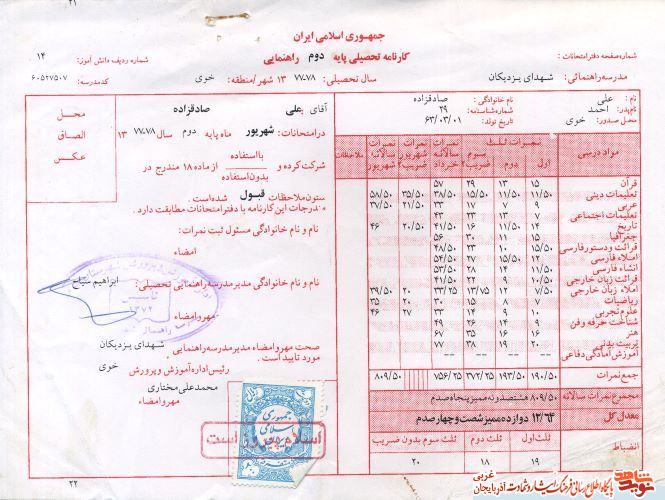 ۲۱
جمهوری اسلامی ایران
کارنامه تحصیلی پایه دوم راهنمایی
شماره صفحه دفتر امتحانات:
شماره ردیف دانش آموز: ۱۴
مدرسه راهنمائی: شهدای یزدیکان
سال تحصیلی: ۷۸-۷۷ ۱۳ شهر/منطقه: خوی
کد مدرسه: ۶۰۵۲۷۵۰۷
نام: علی
نام خانوادگی: صادقزاده
نام پدر: احمد
شماره شناسنامه: ۲۹
محل صدور: خوی
تاریخ تولد: ۶۳/۰۳/۰۱
مواد درسی
نمرات ثلث
اول
دوم
سوم ضریب ۲
نمرات سالانه خرداد
نمرات شهریور ضریب ۲
نمرات سالانه شهریور
ملاحظات
قرآن ۱۵ ۱۳ ۲۹ ۵۷
تعلیمات دینی ۱۱/۵۰ ۱۱/۵۰ ۱۵/۵۰ ۳۸/۵۰ ۳۵/۵۰ ۵۸/۵۰
عربی ۹ ۷ ۱۷ ۳۳ ۲۱/۵۰ ۳۷/۵۰
تعلیمات اجتماعی ۷ ۱۳ ۲۳ ۴۳
تاریخ ۱۴ ۱۱/۵۰ ۱۶/۵۰ ۴۱ ۲۰/۵۰ ۴۶
جغرافیا ۱۵ ۱۱ ۳۰ ۵۶
قرائت و دستور فارسی ۱۵/۵۰ ۱۰ ۲۳ ۴۸/۵۰
املاء فارسی ۱۲/۵۰ ۱۵ ۲۷ ۵۴/۵۰
انشاء فارسی ۱۱/۵۰ ۱۴ ۲۸ ۵۳/۵۰
قرائت زبان خارجی ۱۰ ۹ ۲۲ ۴۱/۵۰
املاء زبان خارجی ۷/۵۰ ۱۲ ۱۳/۷۵ ۳۳/۲۵ ۲۰ ۳۹/۵۰
ریاضیات ۷ ۸ ۱۵ ۳۰ ۲۰ ۳۵
علوم تجربی ۱۰ ۹ ۱۴ ۳۳ ۲۷ ۴۶
شناخت حرفه و فن ۹ ۱۴ ۲۶ ۴۹
هنر ۱۶ ۱۶ ۳۵ ۶۷
تربیت بدنی ۲۰ ۱۹ ۳۸ ۷۷
آموزش آمادگی دفاعی -- -- -- --
جمع نمرات ۱۹۰/۵۰ ۱۹۳/۵۰ ۳۷۲/۲۵ ۷۵۶/۲۵ ۸۰۹/۵۰
مجموع نمرات سالانه ۸۰۹/۵۰ هشتصد و نه ممیز پنجاه صدم
معدل کل ۱۲/۶۴ دوازده ممیز شصت و چهار صدم
انضباط
ثلث اول ثلث دوم ثلث سوم بدون ضریب
۱۹ ۱۸ ۲۰
آقای علی صادقزاده
در امتحانات: شهریور ماه پایه دوم سال ۷۸-۷۷ ۱۳
شرکت کرده و با استفاده از ماده ۱۸ مندرج در
بدون استفاده
ستون ملاحظات قبول شده است.
درجات این کارنامه با دفتر امتحانات مطابقت دارد.
نام و نام خانوادگی مسئول ثبت نمرات:
امضاء
نام و نام خانوادگی مدیر مدرسه راهنمایی تحصیلی: ابراهیم سیاح
مهر و امضاء
صحت مهر و امضاء مدیر مدرسه راهنمایی شهدای یزدیکان
مورد تایید است.
رئیس اداره آموزش و پرورش
محمد علی مختاری
مهر و امضاء
محل
الصاق
عکس
تاسیس
۱۳۷۲
اسلام پیروز است
جمهوری
اسلامی
ایران
۲۲
شاهد
نوید
پایگاه اطلاع رسانی فرهنگ ایثار و شهادت آذربایجان غربی